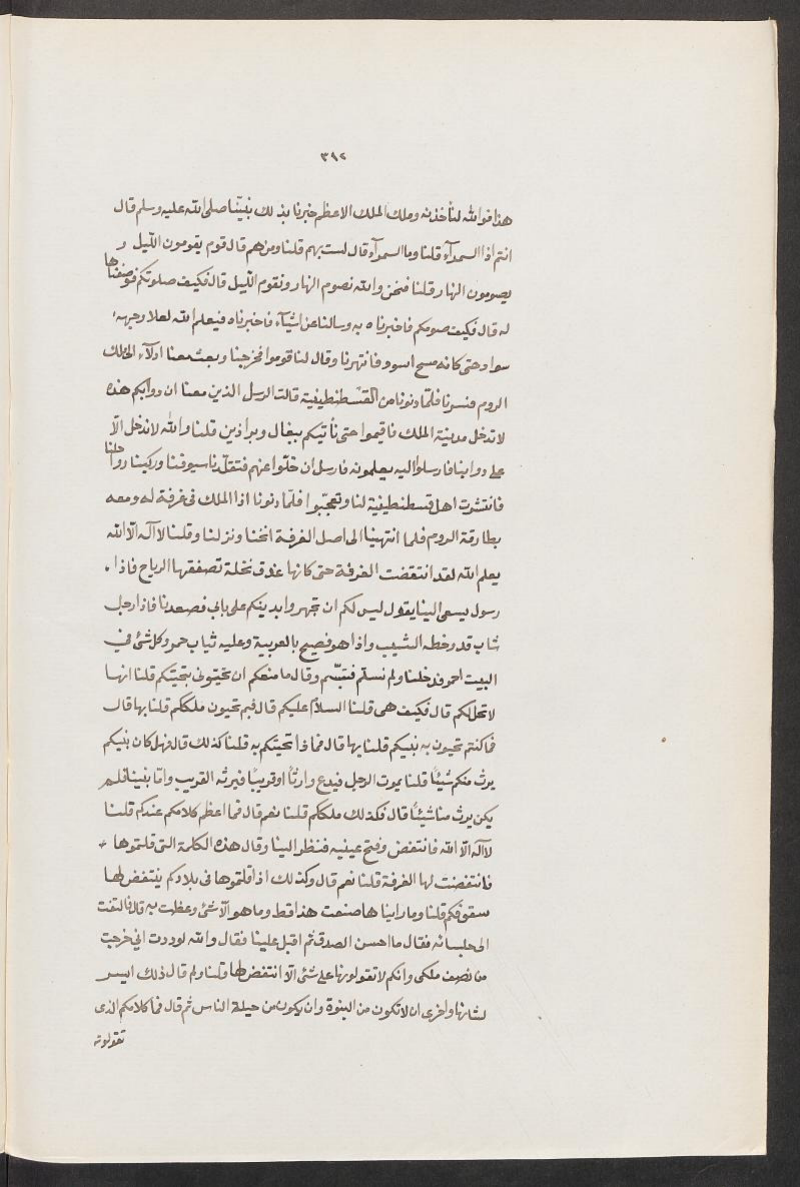 ٣٩٢
هذا فوالله لنأخذنه وملك الملك الاعظم خبرنا بذلك نبيّنا صلى الله عليه وسلم قال
انتم اذا السمرآء قلنا وما السمرآء قال لست بهم قلنا ومن هم قال قوم يقومون الليل و
يصومون النهار قلنا فنحن والله نصوم النهار ونقوم الليل قال فكيف صلوتكم فوصفناها
له قال فكيف صومكم فاخبرناه به وسالنا عن اشيآء فاخبرناه فيعلم الله لعلا وجهه
سواد حتى كانه مسح اسود فانتهرنا وقال لنا قوموا فخرجنا وبعث معنا ادلآء الى ملك
الروم فسرنا فلمّا دنونا من القسطنطينية قالت الرسل الذين معنا ان دوابكم هذه
لا تدخل مدينة الملك فاقيموا حتى نأتيكم ببغال وبراذين قلنا والله لا ندخل الّا
على دوابنا فارسلوا اليه يعلمونه فارسل ان خلّوا عنهم فتقلّدنا سيوفنا وركبنا رواحلنا
فانتشرت اهل قسطنطينية لنا وتعجّبوا فلمّا دنونا اذا الملك فى غرفة له ومعه
بطارقة الروم فلما انتهينا الى اصل الغرفة انخنا ونزلنا وقلنا لا اله الّا الله
يعلم الله لقد انتقضت الغرفة حتى كانها عذق نخلة تصفقها الرياح فاذا
رسول يسعى الينا يقول ليس لكم ان تجهروا بدينكم على بابى فصعدنا فاذا رجل
شاب قد وخطه الشيب واذا هو فصيح بالعربية وعليه ثياب حمر وكل شئ في
البيت احمر فدخلنا ولم نسلم فتبسّم وقال ما منعكم ان تحيّونى بتحيتكم قلنا انها
لا تحل لكم قال فكيف هى قلنا السلام عليكم قال فبم تحيون ملككم قلنا بها قال
فما كنتم تحيون به نبيكم قلنا بها قال فماذا تحيتكم به قلنا كذلك قال فهل كان نبيكم
يرث منكم شيئًا قلنا يموت الرجل فيدع وارثًا او قريبًا فيرثه القريب وامّا نبينا فلم
يكن يرث منا شيئًا قال فكذلك ملككم قلنا نعم قال فما اعظم كلامكم عندكم قلنا
لا اله الّا الله فانتفض وفتح عينيه فنظر الينا وقال هذه الكلمة التى قلتموها
فانتفضت لها الغرفة قلنا نعم قال وكذلك اذا قلتموها فى بلادكم ينتفض لها
سقوفكم قلنا وما راينا ها صنعت هذا قط وما هو الّا شئ وعظت به قال فالتفت
الى جلسائه فقال ما احسن الصدق ثم اقبل علينا فقال والله لوددت اني خرجت
من نصف ملكى وانكم لا تقولونها على شئ الّا انتفض لها قلنا ولم قال ذلك ايسر
لشانها واحرى ان لا تكون من النبوة وان يكون من حيلة الناس ثم قال فما كلامكم الذى
تقولونه